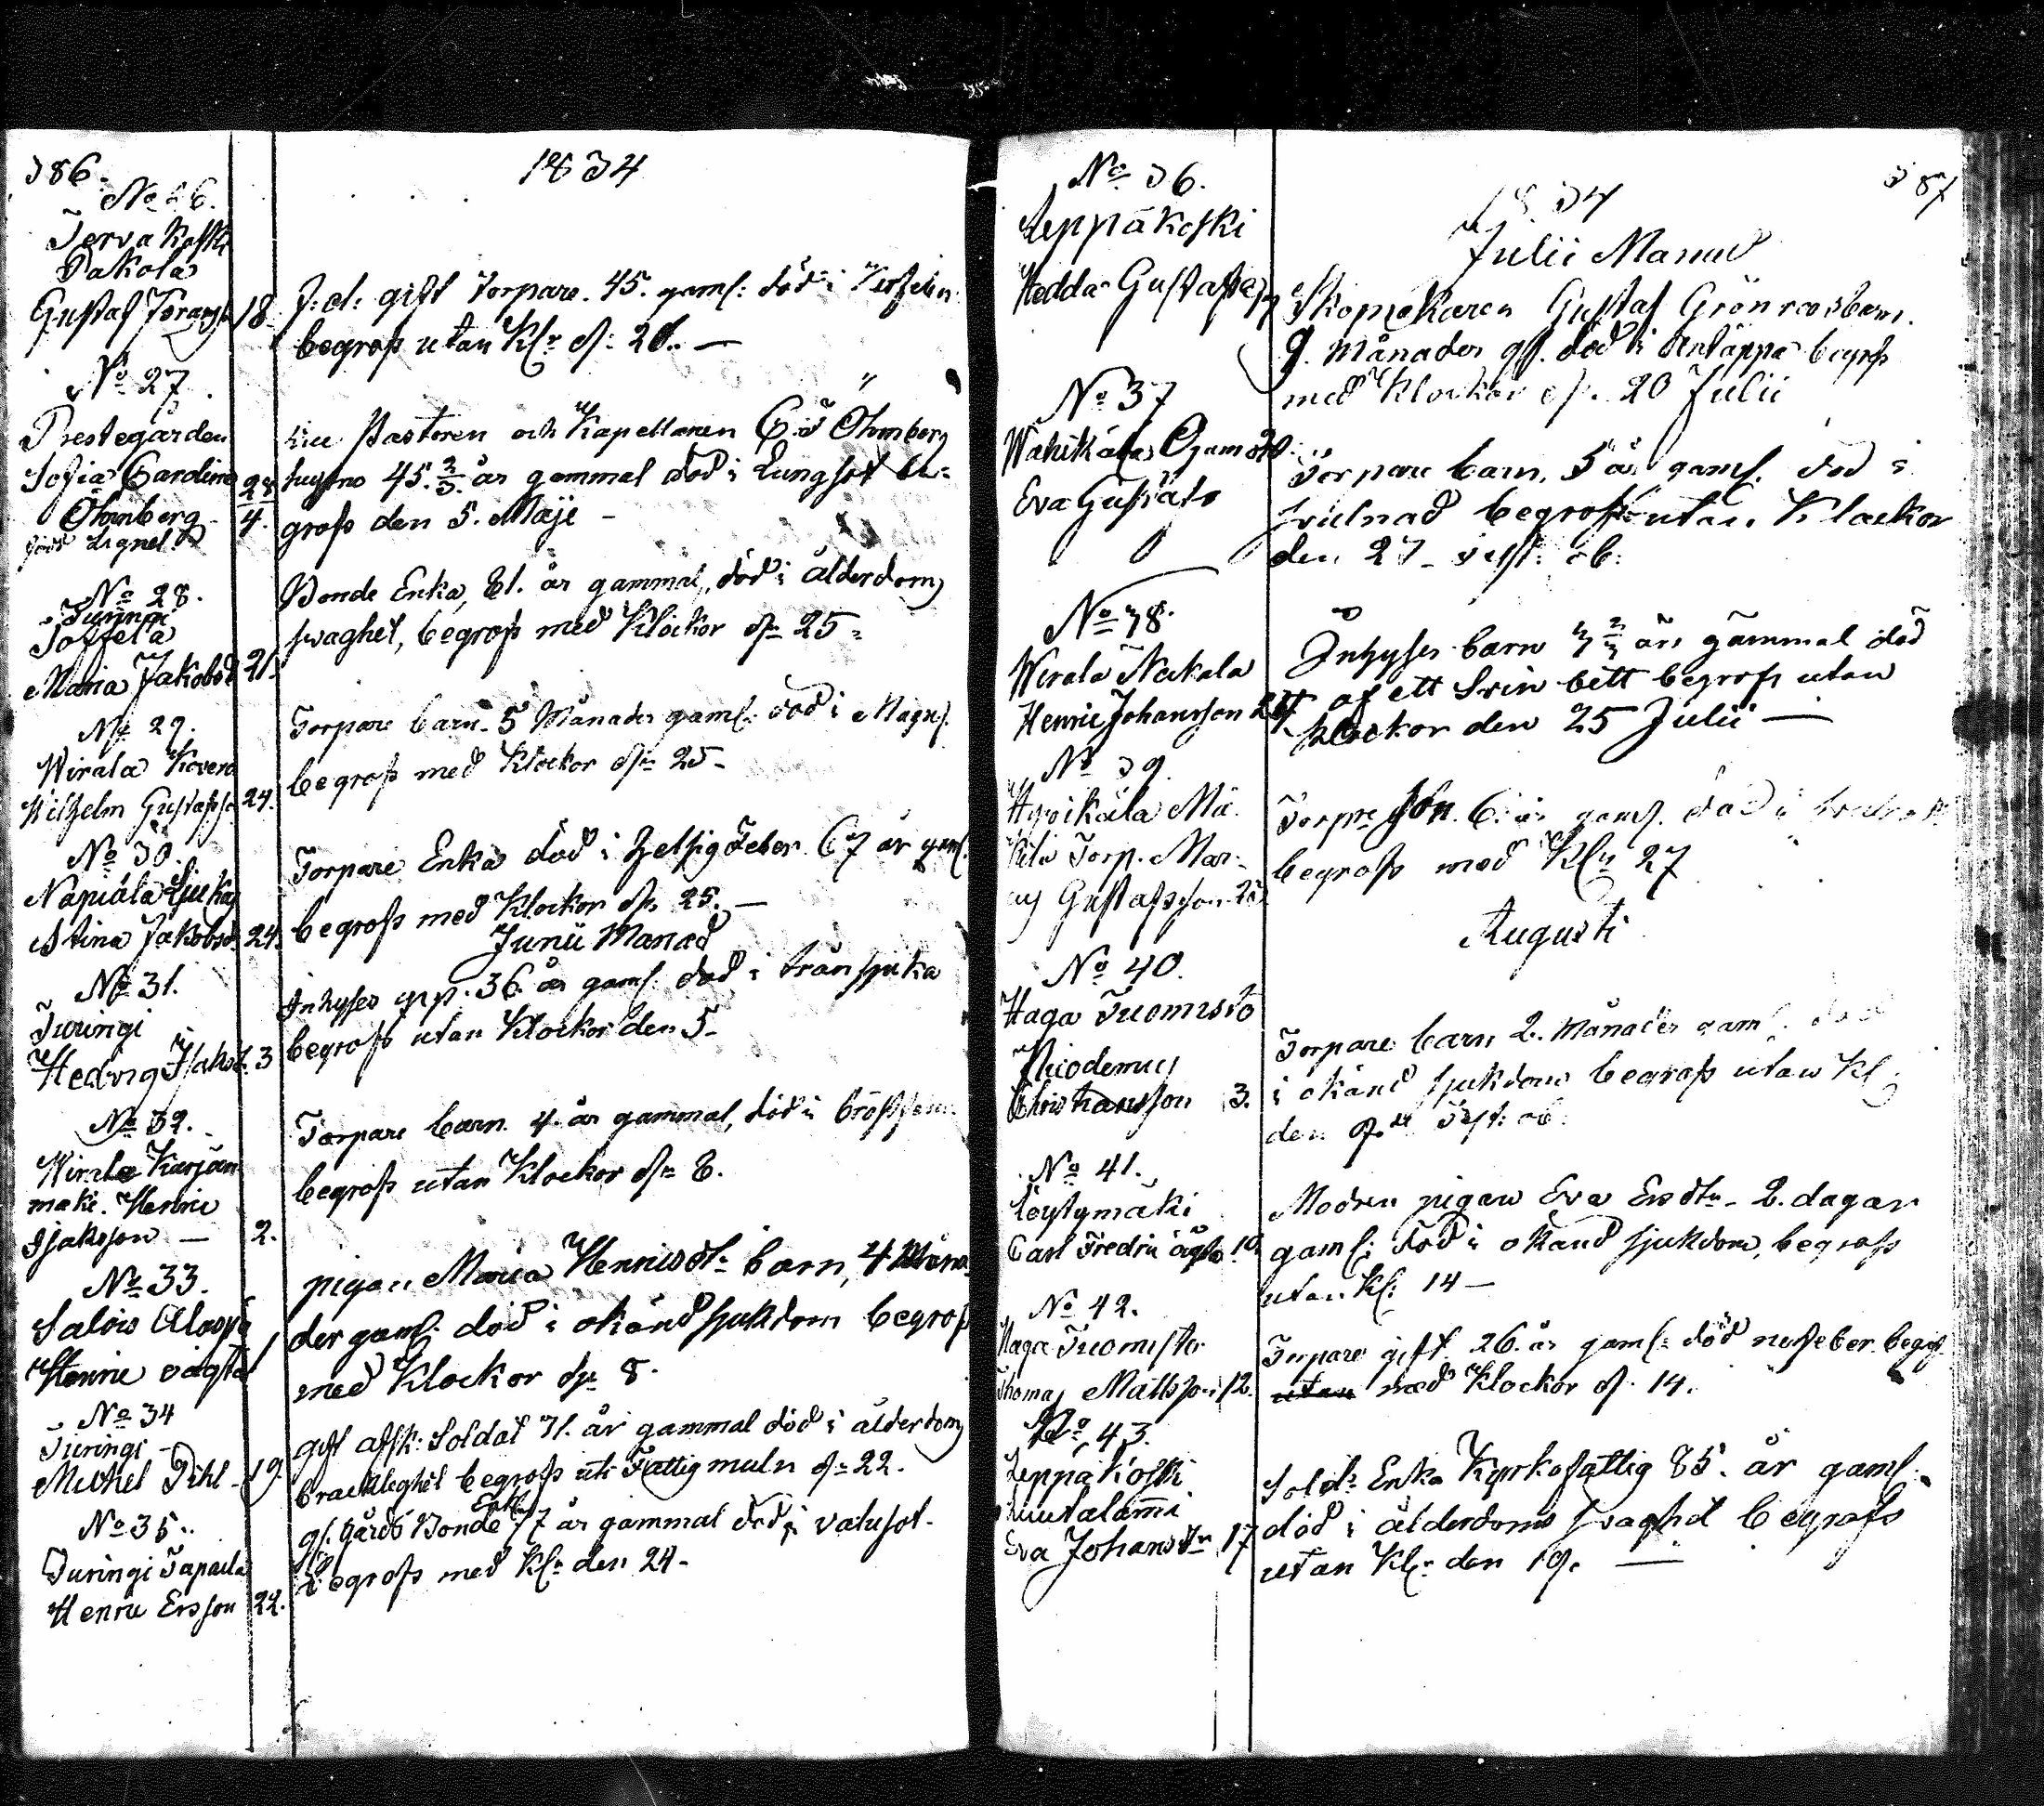 386.
1834
No 26.
Terva Koski
Pakola
Gustaf 18 f: d: gift Torpare. 45. gaml: död i
begrofs utan Klr d: 20. —
No 27.
Prestegården
Sofia Carolina
Öhmberg
född Lignel.
24/4.
Pastoren och Kapellanen Öhmberg
hustro 45. 2/3. år gammal död i Lungsot be-
grofs den 5. Maji —
No 28.
Turingi
Maria Jakobsd 21.
Bonde Enka, 81. år gammal, död i ålderdoms
svaghet, begrofs med Klockor dn 25 -
No 29.
Wirala
Wilhelm Gustafsson 24.
Torpare barn. 5 Månader gaml: död i Magsj.
begrofs med Klockor dn 25 -
No 30.
Napiala
Stina Jakobsd. 24.
Torpare Enka död i 67 år gaml.
begrofs med Klockor dn 25. —
Junii Månad
No 31.
Turingi
Hedvig 3
Inhyses 36. år gaml. död i tränsjuka
begrofs utan Klockor den 5 -
No 32.
Wirala Karjan
maki. Henric
Isaksson — 2.
Torpare barn. 4. år gammal, död i
begrofs utan Klockor dn 8.
No 33.
Salois Alaspä
Henric oägta 1
pigan Maria Henricsdtr barn, 4 Måna-
der gaml. död i okänd sjukdom begrofs
med Klockor dn 8.
No 34
Turingi —
Michel Pihl — 19.
gift afsk: Soldat 71. år gammal död i ålderdoms
bräcklighet begrofs uti Fattigmuln dn 22.
No 35.
Turingi Tapaila
Henric Ersson 22.
gl. Gårds Bonde Enkl. 77 år gammal död i vatusot.
begrofs med Klr den 24 -
387
1834
Julii Månad
No 36.
Leppäkoski
Hedda Gustafsd 17
Skomakaren Gustaf Grönroos barn.
9. Månader gl. död i begrofs
med Klockor d. 20 Julii
No 37
Wähikälä
Eva Gustafs
Torpare barn, 5 år gaml. död i
svulnad begrofs utan Klockor
den 27
No 38.
Wirala Nakala
Henric Johansson
Inhyses barn år gammal död
af ett Svin bett begrofs utan
Klockor den 25 Julii —
No 39.
Hyvikälä Mä
kilä Torp. Mar-
cus Gustafsson
Torpre Son. 6. år gaml. död i
begrofs med Klr 27
Augusti
No 40.
Haga Tuomisto
Nicodemus
Christiansson 3.
Torpare barn 2. Månader gaml. död
i okänd sjukdom begrofs utan Kl.
den
No 41.
Löytymäki
Carl Fredric oägta 10
Modren pigan Eva Ersdtr - 2. dagar
gaml: död i okänd sjukdom, begrofs
utan Kl: 14 —
No 42.
Haga Tuomisto
Thomas Mattsson 12.
Torpare gift 26. år gaml: död begrofs
utan med Klockor d. 14.
No 43.
Leppäkoski
Eva Johansdtr 17
Soldt Enka Kyrkofattig 85. år gaml.
död i ålderdoms svaghet begrofs
utan Klr den 19. —